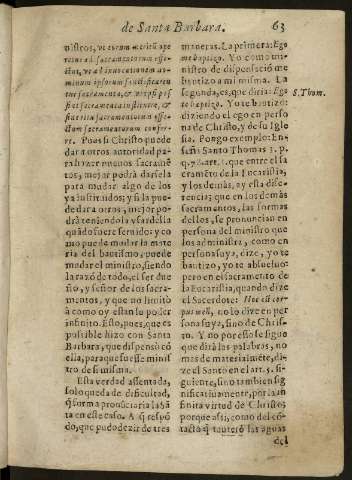 de Santa Barbara.
63
nistros, ut eorum merita ope
rentur ad sacramentorum effe-
ctus, ut ad invocationem no-
minum ipsorum sanctificaren
tur sacramenta, & ut ipsi pos
sint sacramenta instituere, &
sine ritu sacramentorum effe-
ctum sacramentorum confer-
re. Pues si Christo puede
dar a otros autoridad pa-
ra hazer nuevos sacramẽ
tos, mejor podrà darsela
para mudar algo de los
ya instituidos; y si la pue
de dar a otros, mejor po-
drà tenerla o vsar della
quãdo fuere servido: y co
mo puede mudar la mate
ria del bautismo, puede
mudar el ministro, siendo
la razõ de todo, el ser due
ño, y señor de los sacra-
mentos, y que no limitò
a como oy estàn su poder
infinito. Esto, pues, que es
possible hizo con Santa
Barbara, que dispensò cõ
ella, para que fuesse minis
tro de si misma.
Esta verdad assentada,
solo queda de dificultad,
q̃ forma pronũciaria la Sã
ta en este caso. A q̃ respõ
do, que pudo dezir de tres
maneras. La primera: Ego
me baptizo. Yo como mi-
nistro de dispensaciõ me
bautizo a mi misma. La
segunda, es, que diria: Ego
te baptizo. Yo te bautizo:
diziendo el ego en perso
na de Christo, y de su Igle
sia. Pongo exemplo: En-
seña Santo Thomas 3. p.
S. Thom.
q. 78. art. 1. que entre el sa
cramẽto de la Eucaristia,
y los demàs, ay esta dife-
rencia; que en los demàs
sacramentos, las formas
dellos, se pronuncian en
persona del ministro que
los administra, como en
persona suya, dize, yo te
bautizo, yo te absuelvo:
pero en el sacramento de
la Eucaristia, quando dize
el Sacerdote: Hoc est cor-
pus meũ, no lo dize en per
sona suya, sino de Chris-
to. Y no por esso se siguio
que dirà las palabras, no
mas de materialmẽte, di-
ze el Santo en el art. 5. si-
guiente, sino tambien sig
nificativamente, por la in
finita virtud de Christo;
porque assi, como del cõ-
tacto q̃ tuvierõ las aguas
del